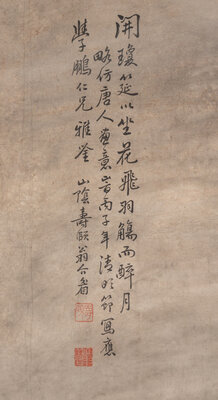 開瓊筵以坐花飛羽觴而醉月
略仿唐人畫意時丙子年清明節寫應
鵬仁兄雅鉴 山陰壽頤翁合者